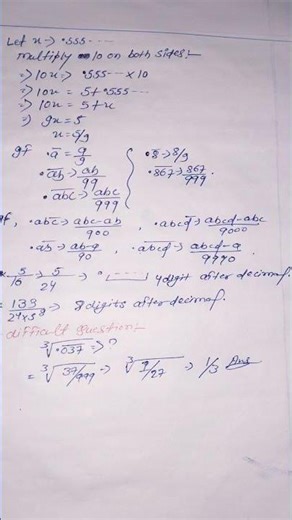 Let x → .555----
multiply 10 on both sides:-
⇒ 10x → .555--- x 10
⇒ 10x = 5 + .555---
⇒ 10x = 5 + x
⇒ 9x = 5
x = 5/9
gf .a̅ = a/9 .8̅ → 8/9
.a̅b̅ → ab/99 .8̅6̅7̅ → 867/999.
.a̅b̅c̅ → abc/999
gf, .abc̅ → abc-ab/900 , .abcd̅ → abcd-abc/9000
.ab̅ → ab-a/90 , .ab̅c̅d̅ → abcd-a/9990.
5/16 → 5/2⁴ → 4 digit after decimal.
= 133/2⁴x5⁸ → 8 digits after decimal.
difficult question:-
∛.0̅3̅7̅ ⇒ ?
= ∛37/999 → ∛1/27 → 1/3 Ans